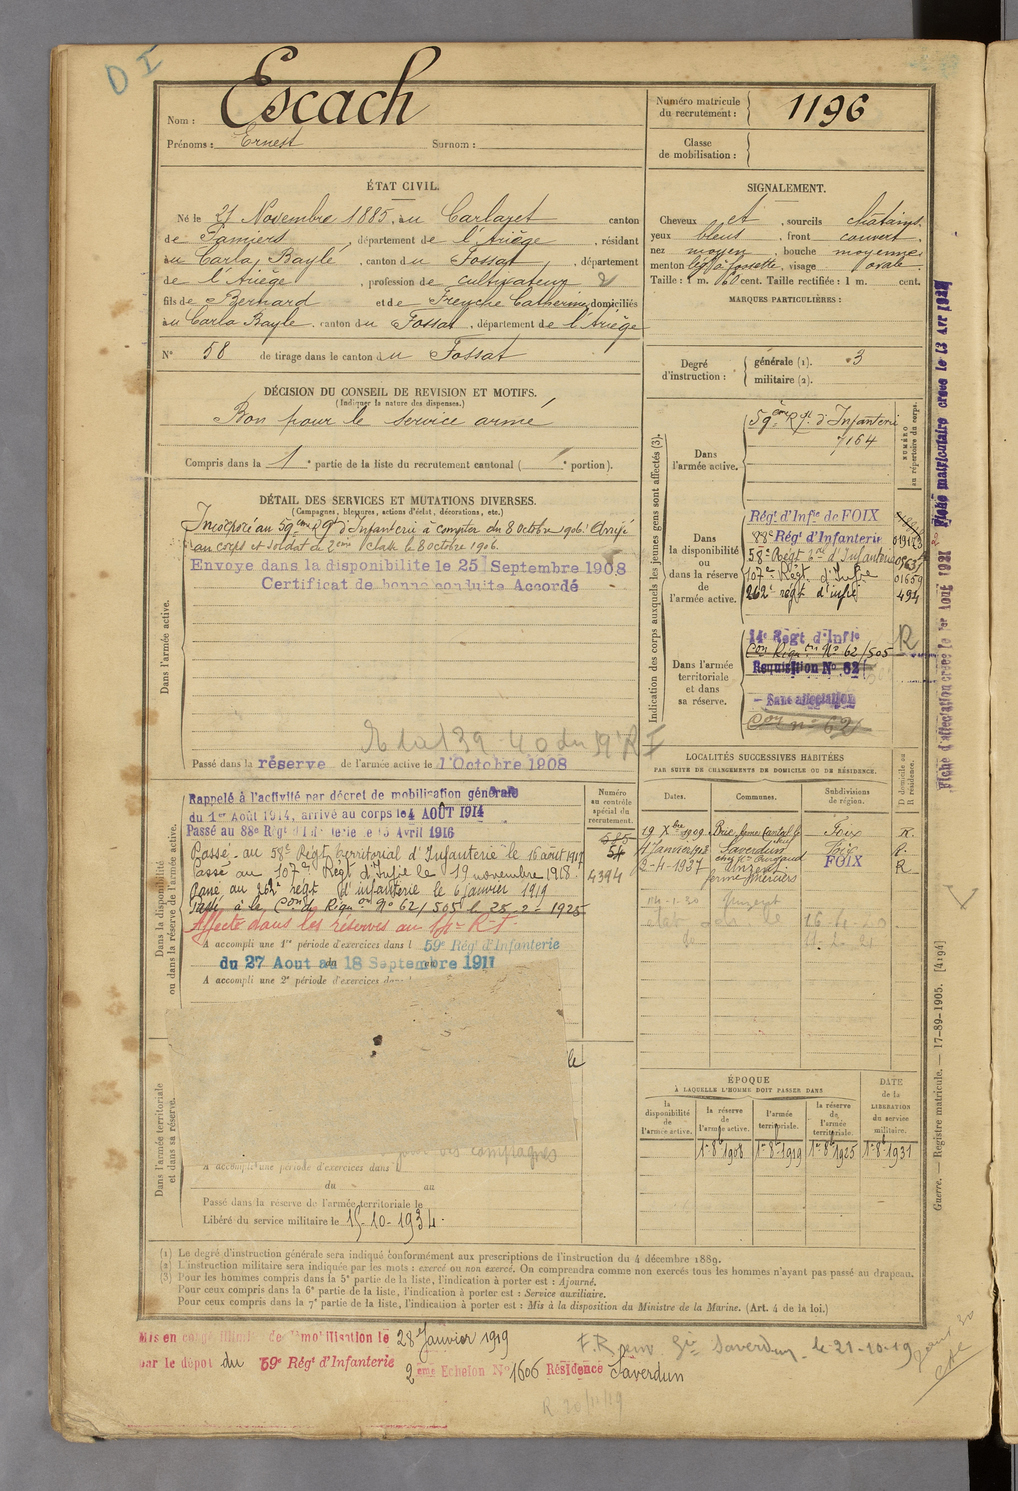 D I
Nom : Escach
Prénoms : Ernest Surnom :
Numéro matricule du recrutement : 1196
Classe de mobilisation :
ÉTAT CIVIL.
Né le 21 Novembre 1885, au Carlaret canton
de Pamiers, département de l'Ariège, résidant
au Carla Bayle, canton du Fossat, département
de l'Ariège, profession de cultivateur 2
fils de Bernard et de Freyche Catherine, domiciliés
au Carla Bayle, canton du Fossat, département de l'Ariège
N° 58 de tirage dans le canton du Fossat
SIGNALEMENT.
Cheveux et, sourcils châtains.
yeux bleus, front couvert,
nez moyen, bouche moyenne
menton à fossette, visage ovale
Taille : 1 m. 60 cent. Taille rectifiée : 1 m. cent.
MARQUES PARTICULIÈRES :
Degré d'instruction : générale (1). 3
militaire (2).
DÉCISION DU CONSEIL DE REVISION ET MOTIFS.
(Indiquer la nature des dispenses.)
Bon pour le service armé
Compris dans la 1e partie de la liste du recrutement cantonal ( e portion).
DÉTAIL DES SERVICES ET MUTATIONS DIVERSES.
(Campagnes, blessures, actions d'éclat, décorations, etc.)
Dans l'armée active.
Incorporé au 59ème Rgt d'Infanterie à compter du 8 octobre 1906. Arrivé
au corps et soldat de 2ème classe le 8 octobre 1906.
Envoyé dans la disponibilité le 25 Septembre 1908
Certificat de bonne conduite Accordé
Passé dans la réserve de l'armée active le 1 Octobre 1908
Indication des corps auxquels les jeunes gens sont affectés (3).
NUMÉRO au répertoire du corps.
Dans l'armée active.
59ème Rgt. d'Infanterie
7164
Dans la disponibilité ou dans la réserve de l'armée active.
Régt d'Infie de FOIX
88e Régt d'Infanterie
58e Régt d'Infanterie
107e Régt. d'Infie 01659
262e régt d'infie 494
Dans l'armée territoriale et dans sa réserve.
14e Régt d'Infie R
Con Riqn on No 62/505
Requisition No 62
Sans affectation
Con no 62
Fiche matriculaire créée le 13 Avr
Fiche d'affectation créée le 1er Août 1921
LOCALITÉS SUCCESSIVES HABITÉES
PAR SUITE DE CHANGEMENTS DE DOMICILE OU DE RÉSIDENCE.
Dates. Communes. Subdivisions de région. D domicile ou R résidence.
19 Xbre 1909 Foix R.
Saverdun Foix R.
2-4-1937 FOIX R
Dans la disponibilité ou dans la réserve de l'armée active.
Numéro au contrôle spécial du recrutement.
585
54
4394
Rappelé à l'activité par décret de mobilisation générale
du 1er Août 1914, arrivé au corps le 4 AOÛT 1914
Passé au 88e Régt d'Infanterie le 15 Avril 1916
Passé au 58e Régt territorial d'Infanterie le 16 août 1917
Passé au 107e Régt d'Infie le 19 novembre 1918.
Passé au 262e régt d'infanterie le 6 Janvier 1919
Passé à la Con de Riqn on No 62/505 le 25-2-1925
Affecté dans les réserves au 14e R-I
A accompli une 1re période d'exercices dans l 59e Régt d'Infanterie
du 27 Aout au 18 Septembre 1911
A accompli une 2e période d'exercices dans
Dans l'armée territoriale et dans sa réserve.
A accompli une période d'exercices dans
du au
Passé dans la réserve de l'armée territoriale le
Libéré du service militaire le 15-10-1934.
ÉPOQUE
À LAQUELLE L'HOMME DOIT PASSER DANS
la disponibilité de l'armée active. la réserve de l'armée active. l'armée territoriale. la réserve de l'armée territoriale. DATE de la LIBÉRATION du service militaire.
1er 8b 1908 1er 8b 1919 1er 8b 1925 1er 8b 1931
Guerre. — Registre matricule. — 17-89-1905. [4194]
(1) Le degré d'instruction générale sera indiqué conformément aux prescriptions de l'instruction du 4 décembre 1889.
(2) L'instruction militaire sera indiquée par les mots : exercé ou non exercé. On comprendra comme non exercés tous les hommes n'ayant pas passé au drapeau.
(3) Pour les hommes compris dans la 5e partie de la liste, l'indication à porter est : Ajourné.
Pour ceux compris dans la 6e partie de la liste, l'indication à porter est : Service auxiliaire.
Pour ceux compris dans la 7e partie de la liste, l'indication à porter est : Mis à la disposition du Ministre de la Marine. (Art. 4 de la loi.)
Mis en congé illimité de démobilisation le 28 Janvier 1919
par le dépôt du 59e Régt d'Infanterie
2eme Echelon No 1606 Résidence Saverdun
Saverdun le 21-10-19
R 20/11/19